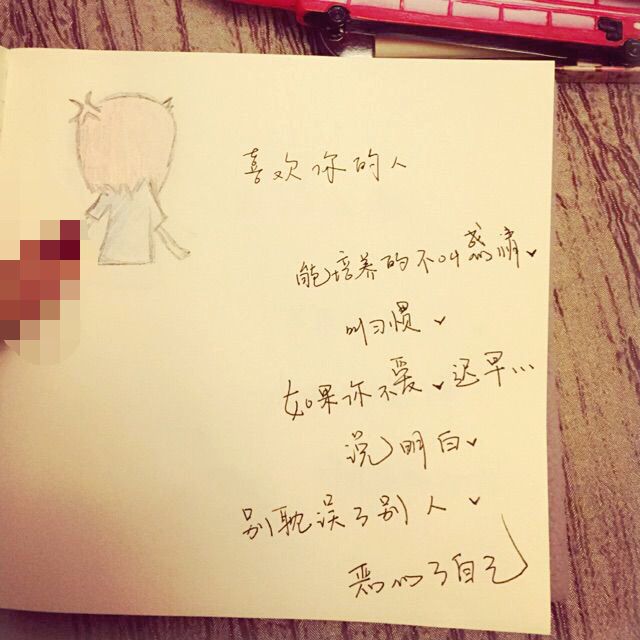 喜欢你的人
能培养的不叫感情
叫习惯
如果你不爱 迟早...
说明白
别耽误了别人
恶心了自己